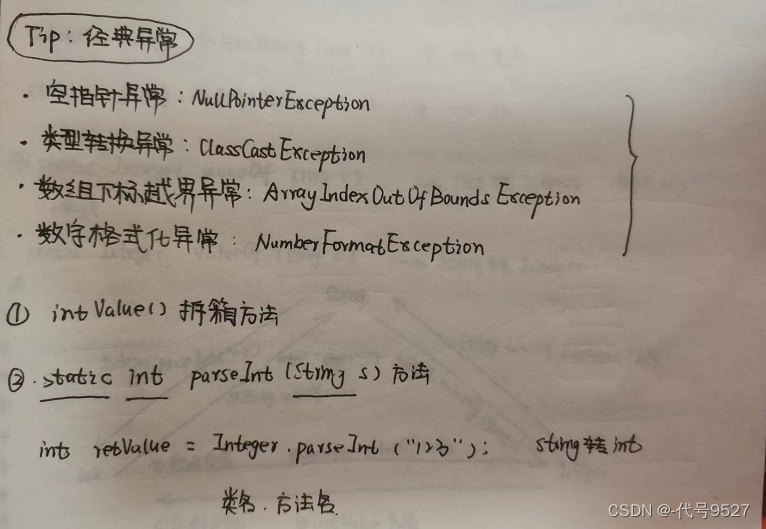 Tip：经典异常
· 空指针异常：NullPointerException
· 类型转换异常：ClassCastException
· 数组下标越界异常：ArrayIndexOutOfBoundsException
· 数字格式化异常：NumberFormatException
① intValue() 拆箱方法
② .static int parseInt (String s) 方法
int retValue = Integer.parseInt ("123"); string转int
类名.方法名
CSDN @-代号9527